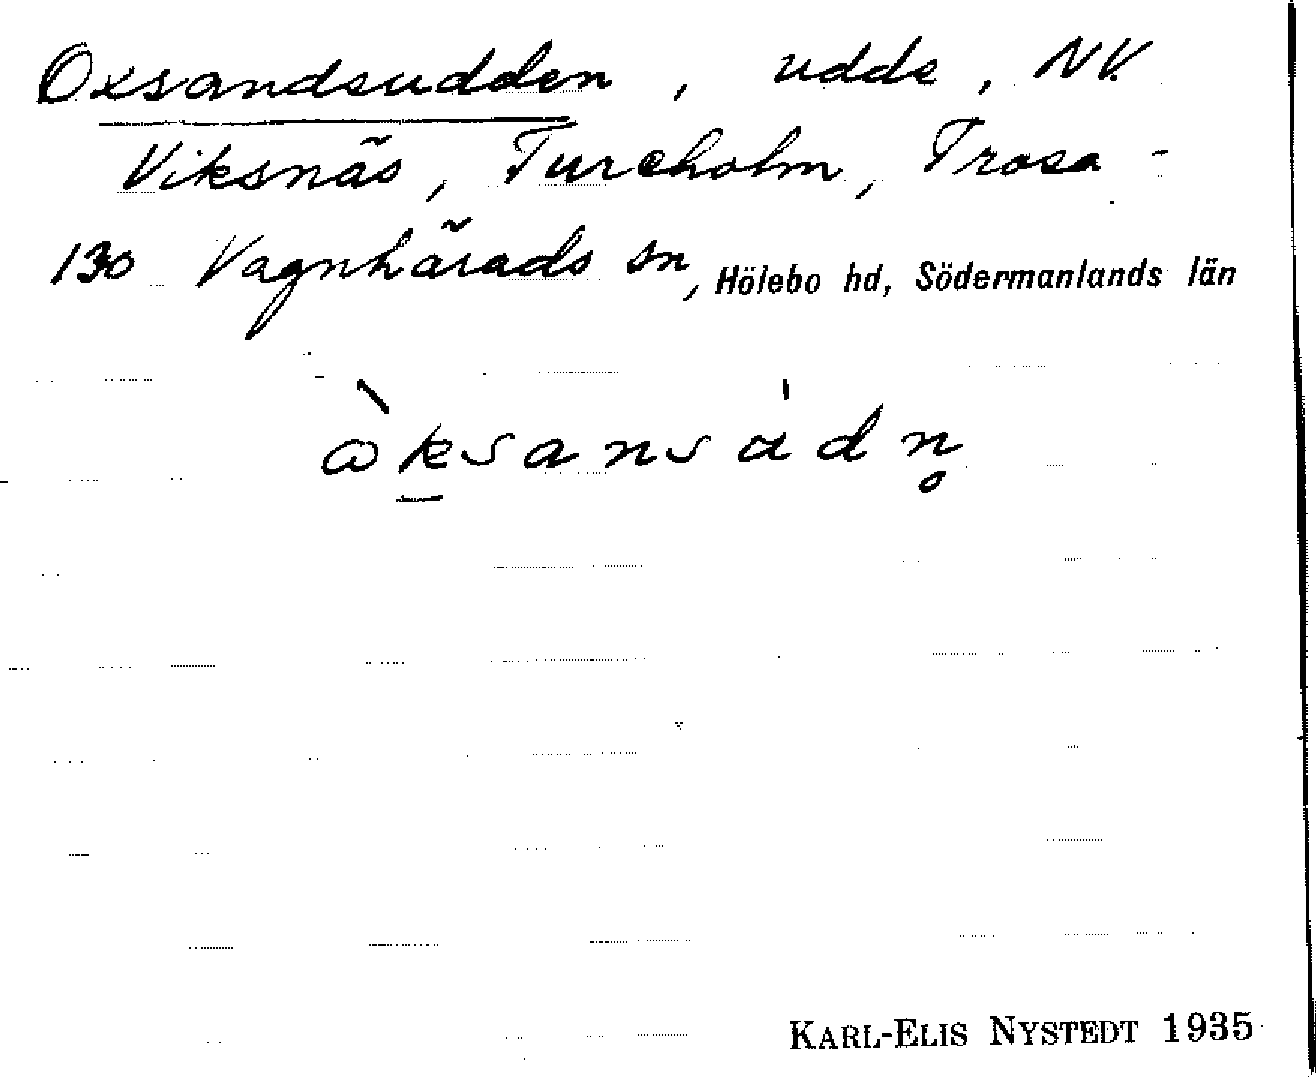 Oxsandsudden, udde, NV.
Viksnäs, Tureholm, Trosa-
130 Vagnhärads sn, Hölebo hd, Södermanlands län
KARL-ELIS NYSTEDT 1935